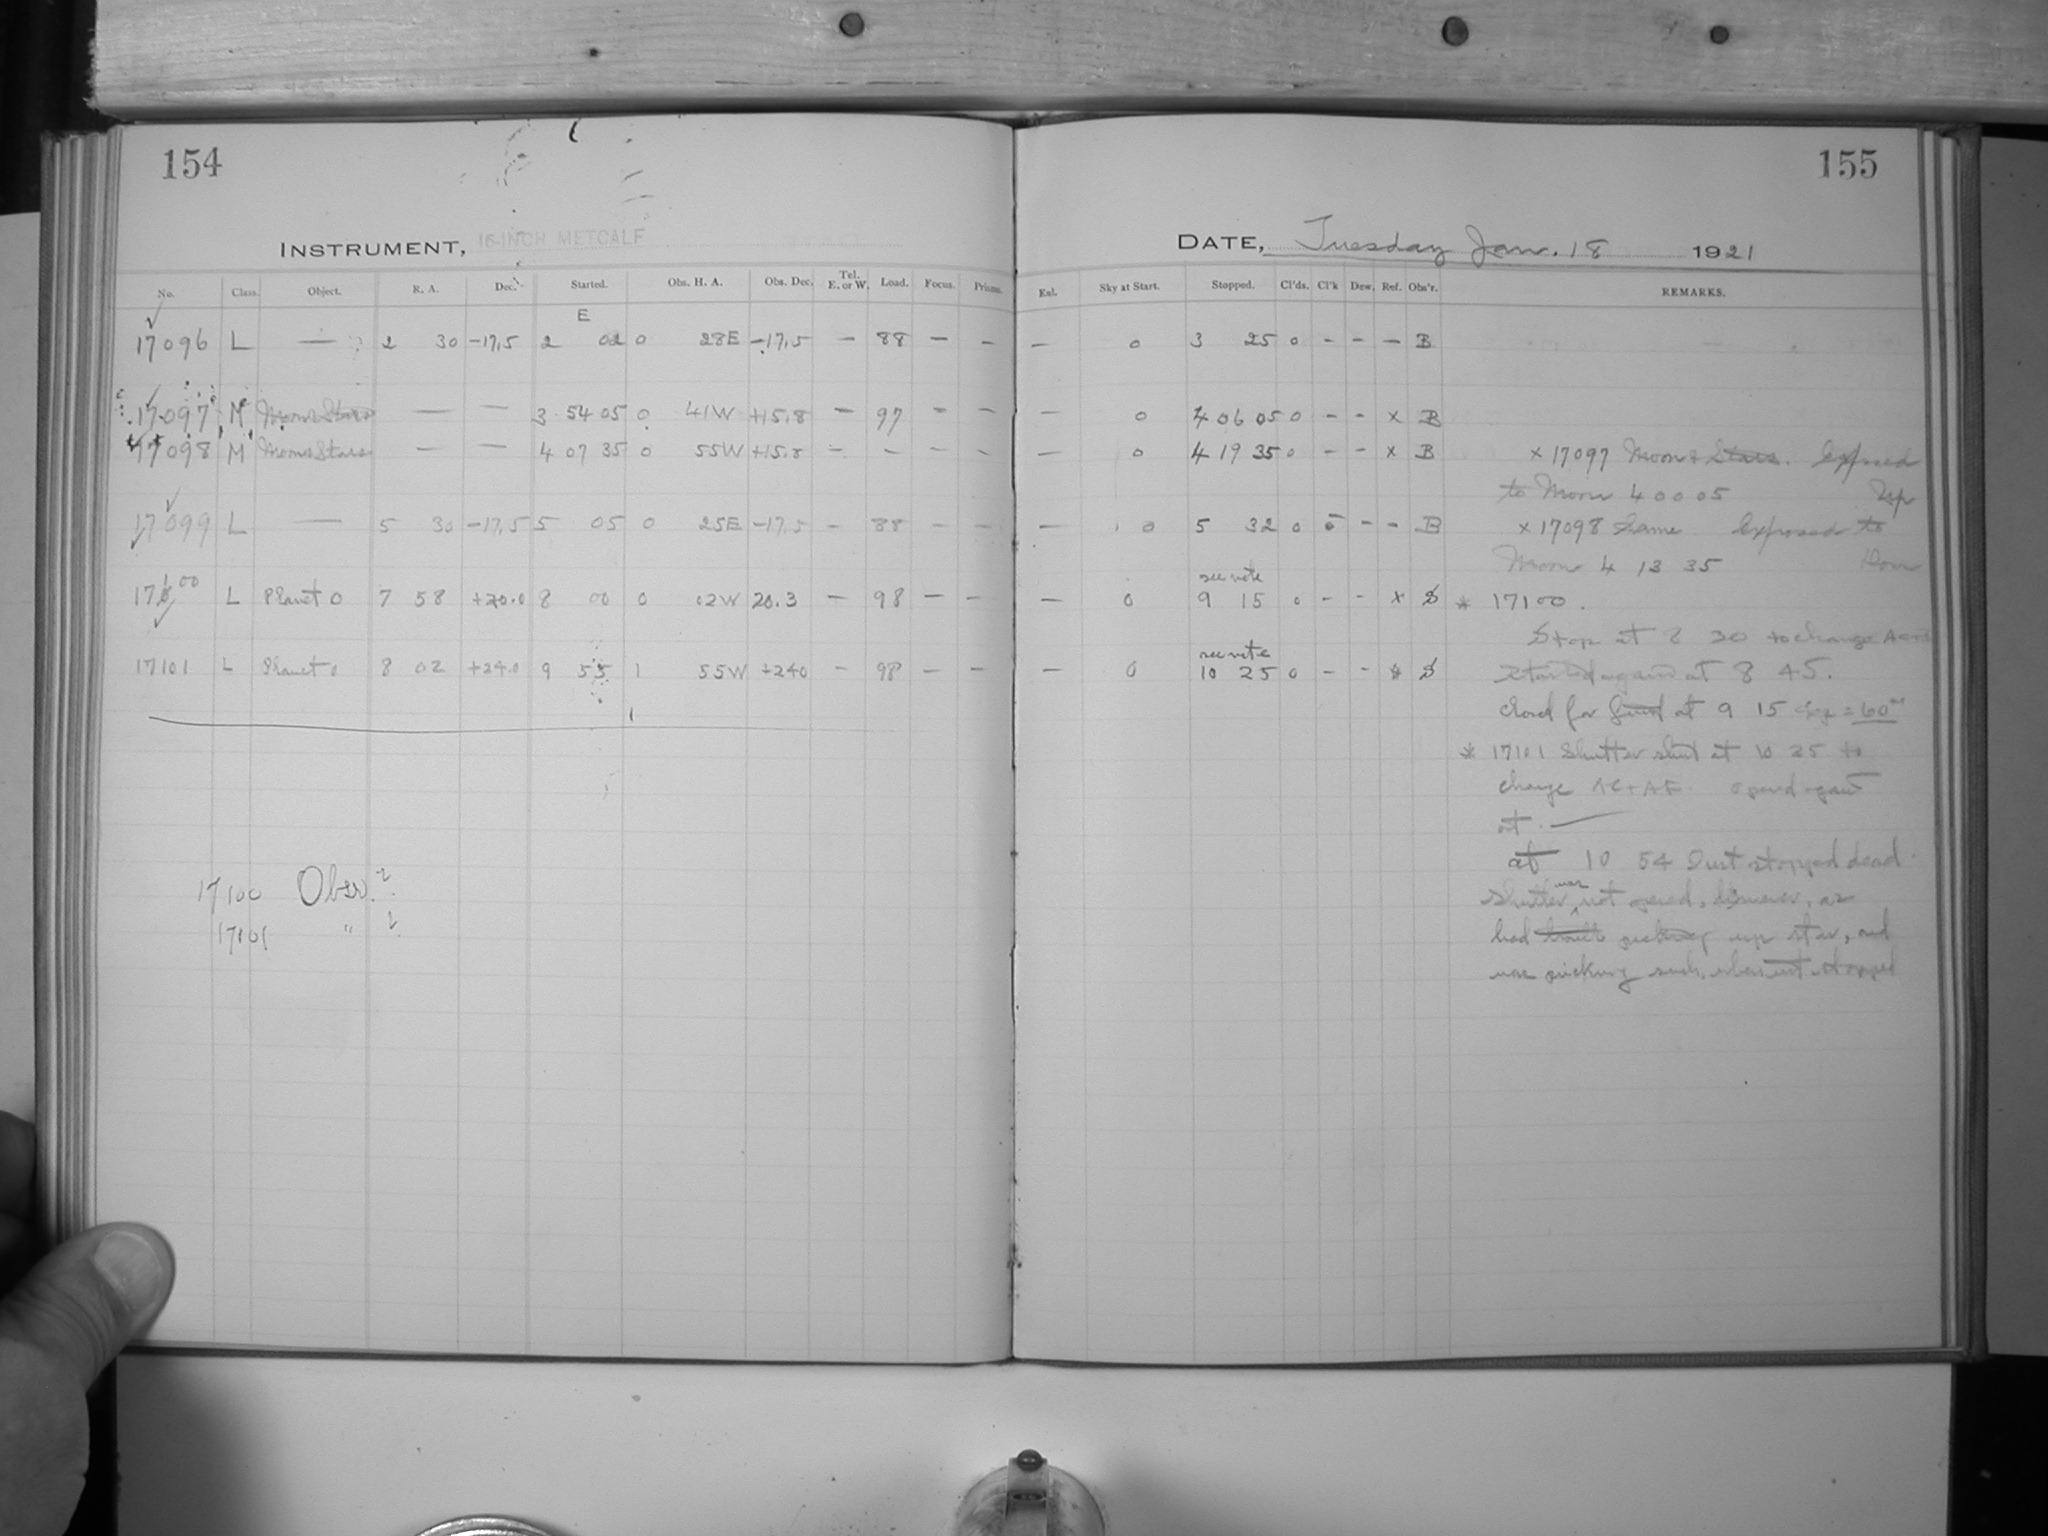 154
155
INSTRUMENT, 16-INCH METCALF
DATE, Tuesday Jan. 18 1921
No. Class. Object. R. A. Dec. Started. Obs. H. A. Obs. Dec. Tel. E. or W. Load. Focus. Prisms. Exl. Sky at Start. Stopped. Cl'ds. Cl'k Dew. Ref. Obs'r. REMARKS.
E
17096 L — 2 30 -17.5 2 02 0 28E -17.5 — 88 — — — 0 3 25 0 - - — B
17097 M Moon+Stars — — 3 54 05 0 41W +15.8 — 97 - — — 0 4 06 05 0 - - x B
17098 M Moon+Stars — — 4 07 35 0 55W +15.8 - - - - 0 4 19 35 0 - - x B
x 17097 Moon + Stars. Exposed
to Moon 4 00 05
17099 L — 5 30 -17.5 5 05 0 25E -17.5 - 88 - - — 0 5 32 0 0 - - B
x 17098 Same Exposed to
Moon 4 13 35
see note
17100 L Planet 0 7 58 +20.0 8 00 0 02W 20.3 — 98 — — — 0 9 15 0 - - x S
* 17100.
Stop at 8 30 to change
started again at 8 45.
see note
17101 L Planet 0 8 02 +24.0 9 55 1 55W +240 — 98 — — — 0 10 25 0 - - * S
closed for at 9 15 exp = 60m
* 17101 Shutter shut at 10 25 to
change AC+AF. opend again
at —
at 10 54 Inst stopped dead
Shutter was not opened, however, as
had picking up star, and
was picking such, when inst stopped
17100 Obser.?
17101 " ?